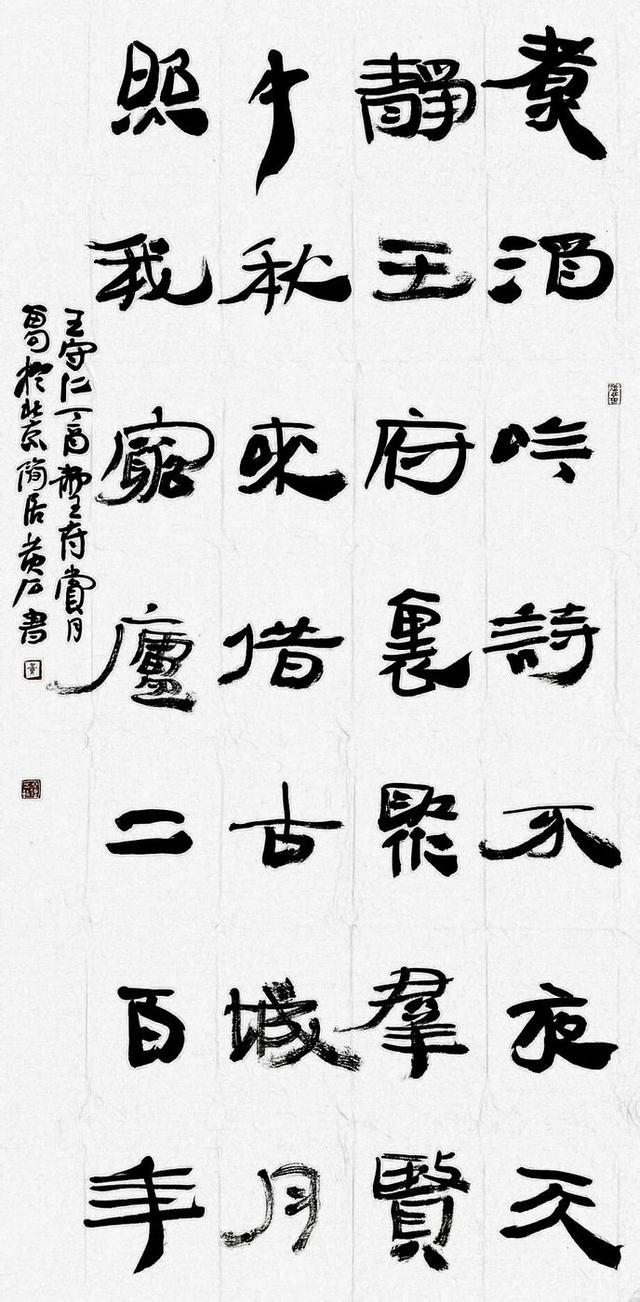 煮酒吟詩不夜天
靜王府裏聚羣賢
秋來借古城月
照我廬二百年
王守仁丁酉王府賞月
於北京簡居黄石書